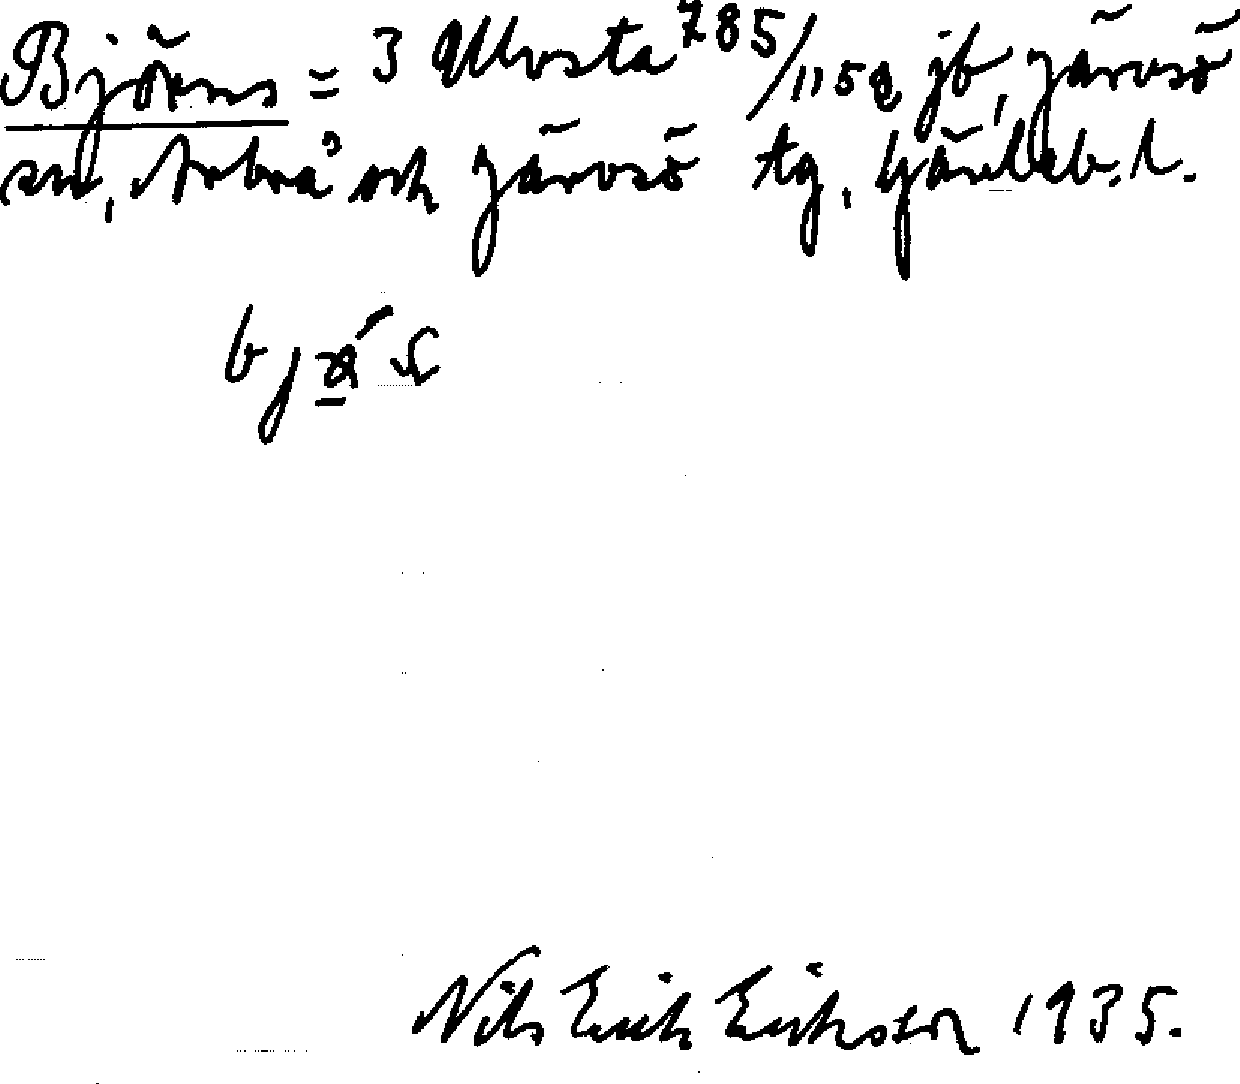 Björns = 3 Ullvsta 785/1152 jb, Järvsö
sn, Arbrå och Järvsö tg, Gävleb. l.
Nils Erik Eriksson 1935.